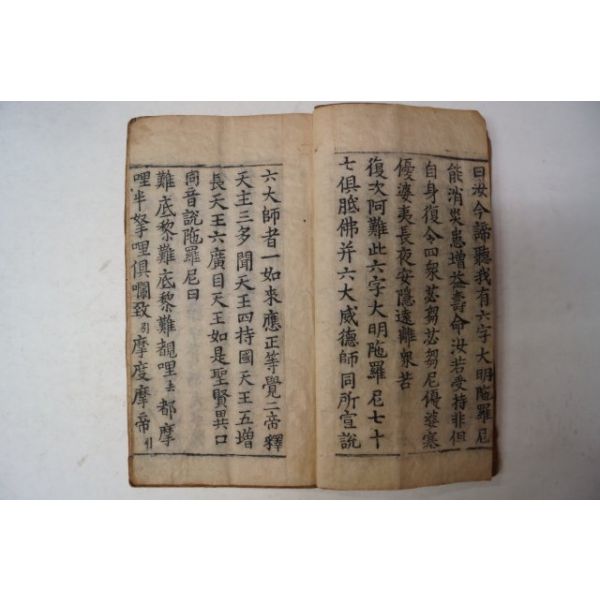 曰汝今諦聽我有六字大明陁羅尼
能消災患增益壽命汝若受持非但
自身復令四衆苾芻苾芻尼優婆塞
優婆夷長夜安隱遠離衆苦
復次阿難此六字大明陁羅尼七十
七俱胝佛并六大威德師同所宣說
六大師者一如來應正等覺二帝釋
天主三多聞天王四持國天王五增
長天王六廣目天王如是聖賢異口
同音說陁羅尼曰
難底黎難底黎難覩哩去都摩
哩半拏哩俱囉致引摩度摩帝引